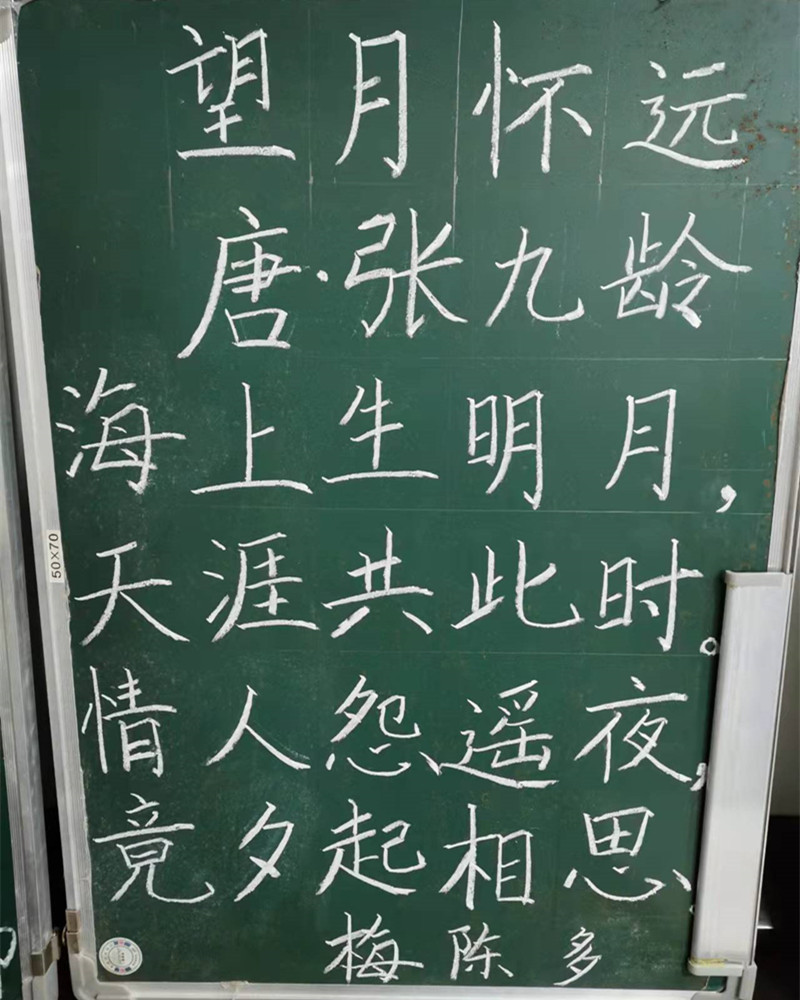 望月怀远
唐·张九龄
海上生明月,
天涯共此时。
情人怨遥夜,
竟夕起相思。
梅陈多
50×70